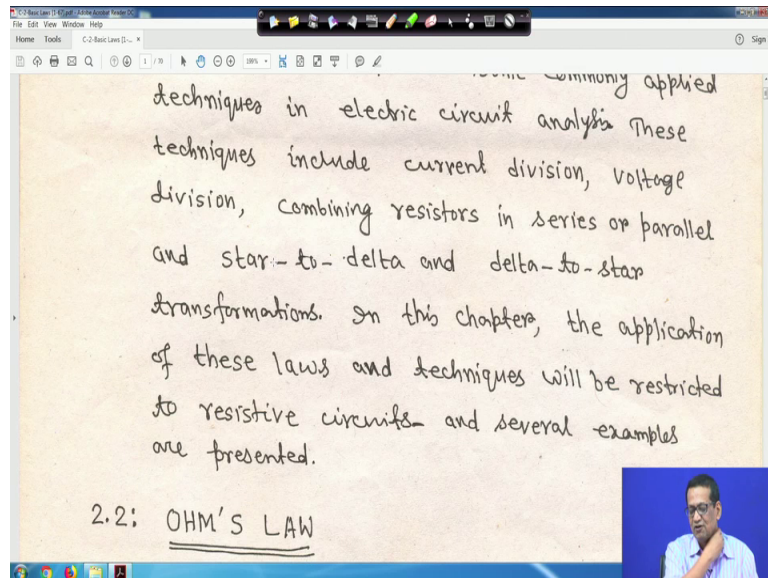 C-2-Basic Laws [1-67].pdf - Adobe Acrobat Reader DC
File Edit View Window Help
Home Tools C-2-Basic Laws [1-... × Sign
1 / 70 199%
some commonly applied
techniques in electric circuit analysis. These
techniques include current division, voltage
division, combining resistors in series or parallel
and star-to-delta and delta-to-star
transformations. In this chapter, the application
of these laws and techniques will be restricted
to resistive circuits and several examples
are presented.
2.2: OHM'S LAW